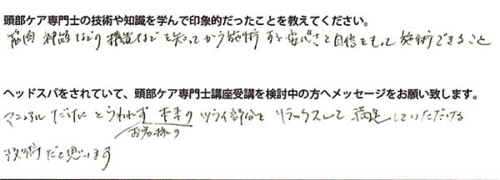 頭部ケア専門士の技術や知識を学んで印象的だったことを教えてください。
筋肉 神経などの構造などを知ってから施術する安心と自信をもって施術できること
ヘッドスパをされていて、頭部ケア専門士講座受講を検討中の方へメッセージをお願い致します。
マニュアルだけにとらわれず 本来の ツライ部分を リラックスして 満足していただける
お客様の
技術だと思います